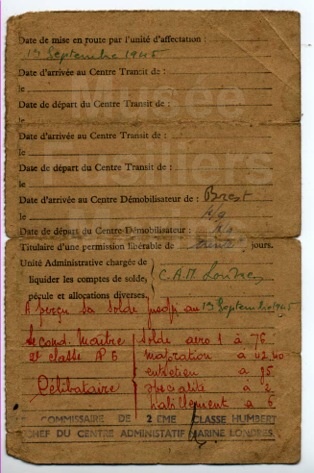 Date de mise en route par l'unité d'affectation :
13 Septembre 1945
Date d'arrivée au Centre Transit de :
le
Date de départ du Centre Transit de :
le
Date d'arrivée au Centre Transit de :
le
Date de départ du Centre Transit de :
le
Date d'arrivée au Centre Démobilisateur de : Brest
le
Date de départ du Centre Démobilisateur :
Titulaire d'une permission libérable de jours.
Unité Administrative chargée de
liquider les comptes de solde, C.A.M. Londres
pécule et allocations diverses.
A perçu sa Solde jusqu'au 13 Septembre 1945
Second Maitre Solde aero 1 à 76
2e classe N° 6 majoration à 42,60
entretien à 85
Célibataire spécialité à 2
habillement à 6
COMMISSAIRE DE 2 EME CLASSE HUMBERT
CHEF DU CENTRE ADMINISTATIF MARINE LONDRES
Musée